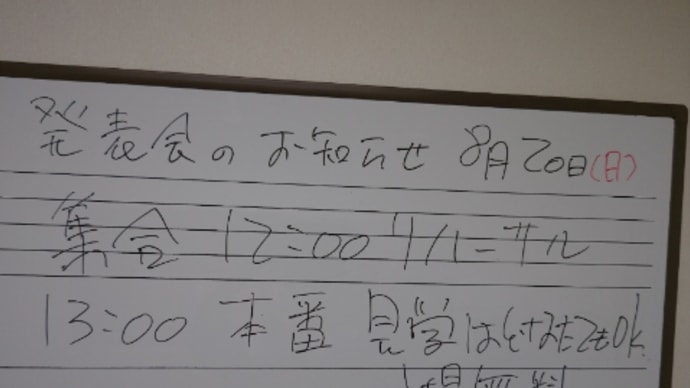 発表会のお知らせ 8月20日(日)
集合 12:00 リハーサル
13:00 本番 見学はどなたでもOk
場無料